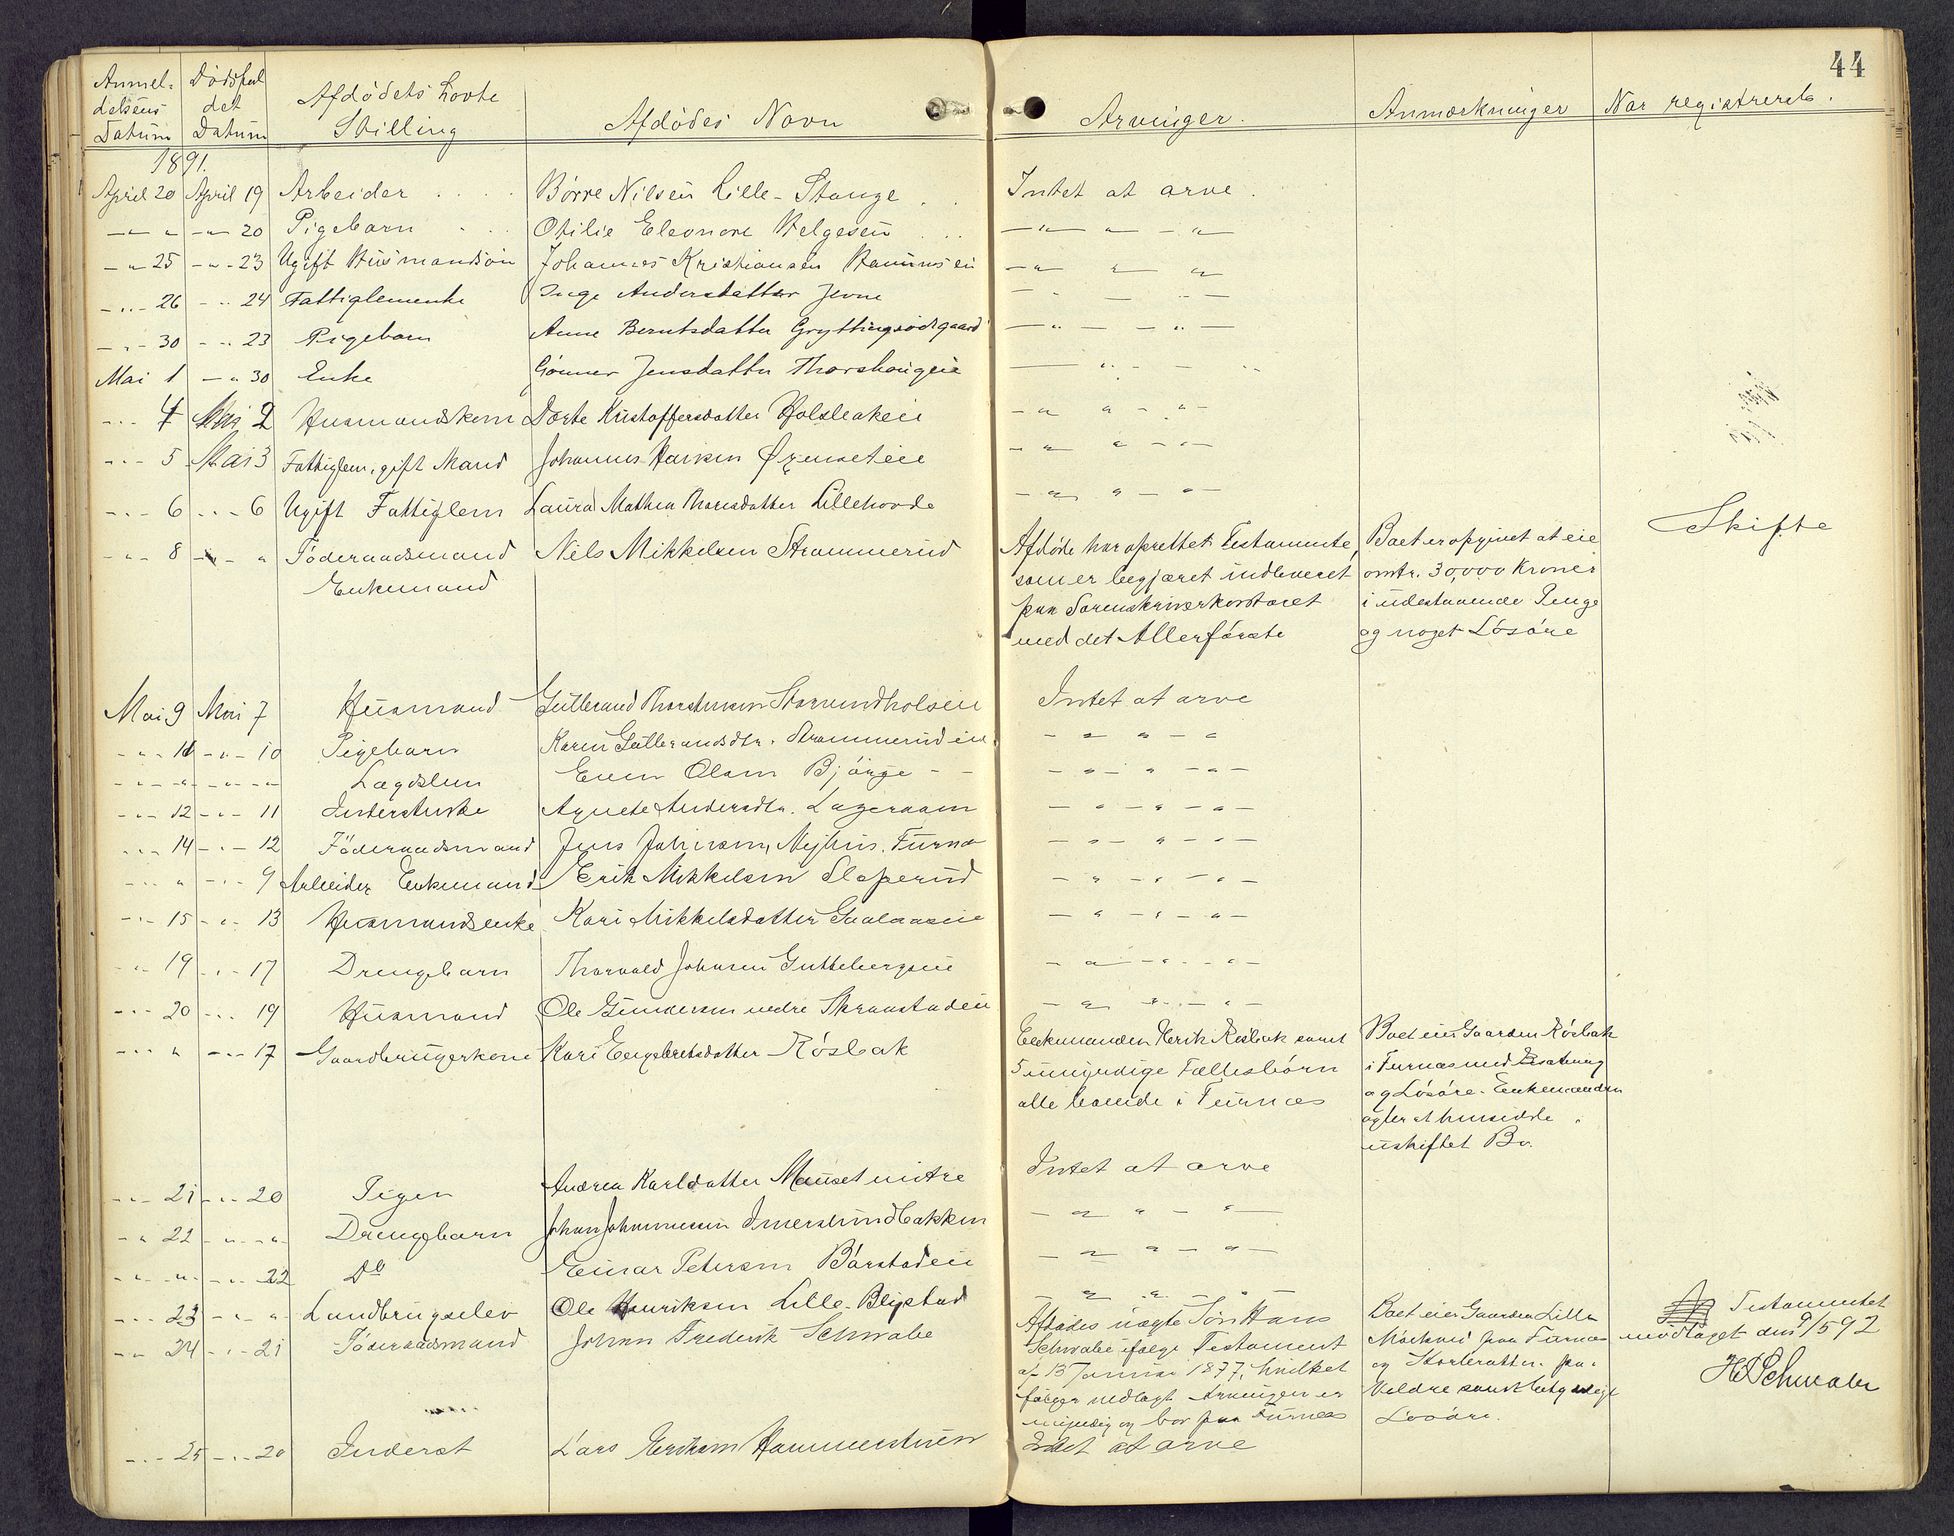 44
Anmel-delsens Datum Dødsfaldet Datum Afdødets Lovte Stilling Afdødes Navn Arvinger. Anmærkninger Nar registrerets.
1891.
April 20 April 19 Arbeider Børre Nilsen Lille-Stange Intet at arve.
-"- " -"- 20 Pigebarn Otilie Eleonore Helgesen -"- " -"-
-"- 25 -"- 23 Ugift Husmandsøn Johannes Kristiansen -" " "
-"- 26 -"- 24 Fattiglemenke Inge Andersdatter Jevne -"-
-"- 30 -"- 23 Pigebarn Anne Berntsdatter Gryttingsødegaard -"- - " -
Mai 1 -"- 30 Enke Gönner Jensdatter Thorshaugeie - " - "
-"- 4 Mai 2 Husmandskone Dorte Kristoffersdatter Holsbakeie -" " - " -
-"- 5 Mai 3 Fattiglem, gift Mand Johannes Hansen -" " - " -
-"- 6 -"- 6 Ugift Fattiglem Laura Mathea Thorsdatter Lillehovde -" " - " -
-"- 8 -"- " Föderaadsmand Nils Mikkelsen Strammerud Afdøde har oprettet Testamente, Boet er opgivet at eie Skifte
Enkemand som er begjæret indleveret omtr. 30,000 Kroner
paa Sorenskriverkontoret i udestaaende Penge
med det Allerförste og noget Lösöre
Mai 9 Mai 7 Husmand Gulbrand Thorstensen Intet at arve
-"- 11 -"- 10 Pigebarn Karen Gulbrandsdtr. Strammerudeie - " " - "
-"- " -"- " Lægdslem Even Olsen Björge - - - " - " - " -
-"- 12 -"- 11 Inderstenke Agnete Andersdtr. Lageraaen - " - " - " -
-"- 14 -"- 12 Föderaadsmand Jens Johansen, Nyhus, Furnæs - " - " - " -
-"- " -"- 9 Arbeider Enkemand Erik Mikkelsen Slaperud - " - " - " -
-"- 15 -"- 13 Husmandsenke Kari Mikkelsdatter Gaalaaseie - " - " - " -
-"- 19 -"- 17 Drengebarn Thorvald Johnsen Guttebergseie - " - " - " -
-"- 20 -"- 19 Husmand Ole Gundersen nedre Skraastadeie - " " - " -
-"- " -"- 17 Gaardbrugerkone Kari Engebretsdatter Rösbak Enkemanden Henrik Rösbak samt Boet eier Gaarden Rösbak
5 umyndige Fællesbörn i Furnæs med Besætning
alle boende i Furnæs og Lösöre. Enkemanden
agter at hensidde
uskiftet Bo.
-"- 21 -"- 20 Pigen Andrea Karlsdatter Mauset nidtre Intet at arve
-"- 22 -"- " Drengebarn Johan Johannessen Imerslundbakken - " " - " -
-"- " -"- 22 Do Einar Petersen Bårstadeie - " " - " -
-"- 23 -"- " Landbrugselev Ole Henriksen Lille-Blystad - " " - " -
-"- 24 -"- 21 Föderaadsmand Johan Frederik Schwabe Afdødes ægte Sön Hans Boet eier Gaarden Lille Testamentet
Schwabe ifølge Testament paa Furnæs modtaget den 9/5 92
af 13 Januar 1877, hvilket og paa HSchwabe
følger vedlagt. Arvingen er Veldre samt betydelige
myndig og bor paa Furnæs Lösöre.
-"- 25 -"- 20 Inderst Lars Eriksen Hammerstuen Intet at arve